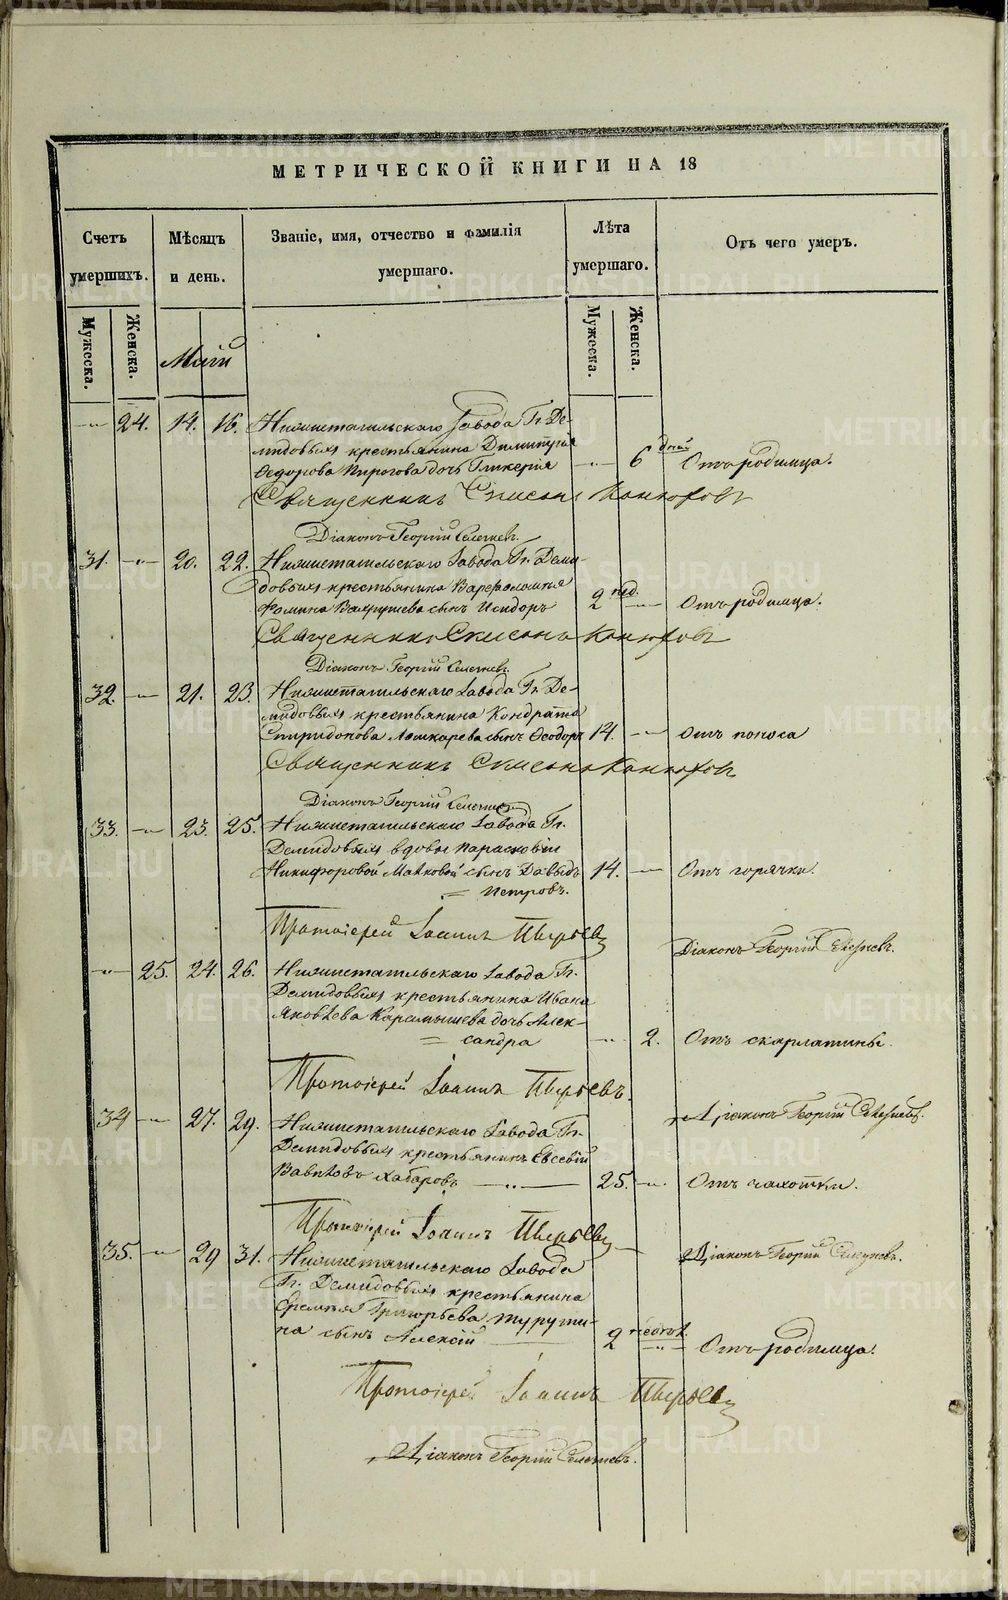 МЕТРИЧЕСКОЙ КНИГИ НА 18
Счетъ умершихъ.
Мѣсяцъ и день.
Званіе, имя, отчество и фамилія умершаго.
Лѣта умершаго.
Отъ чего умеръ.
Мужеска.
Женска.
Май
Мужеска.
Женска.
24. 14. 16. Нижнетагильскаго Завода Гг. Де-
мидовыхъ крестьянина Димитрія
Ѳедорова Пирогова дочь Гликерія 6 дней Отъ родимца.
Священникъ Симеонъ Конюховъ
Діаконъ Георгій Селезневъ.
31. 20. 22. Нижнетагильскаго Завода Гг. Деми-
довыхъ крестьянина Варѳоломея
Фомина сынъ Исидоръ 2 нед. Отъ родимца.
Священникъ Симеонъ Конюховъ
Діаконъ Георгій Селезневъ.
32. 21. 23. Нижнетагильскаго Завода Гг. Де-
мидовыхъ крестьянина Кондрата
Спиридонова Лошкарева сынъ Ѳеодоръ 14. Отъ поноса
Священникъ Симеонъ Конюховъ
Діаконъ Георгій Селезневъ
33. 23. 25. Нижнетагильскаго Завода Гг.
Демидовыхъ вдовы Парасковіи
Никифоровой Маяковой сынъ Давыдъ 14. Отъ горячки.
Петровъ.
Протоіерей Іоаннъ
Діаконъ Георгій Селезневъ.
25. 24. 26. Нижнетагильскаго Завода Гг.
Демидовыхъ крестьянина Ивана
Яковлева Карамышева дочь Алек-
сандра 2. Отъ скарлатины.
Протоіерей Іоаннъ
Діаконъ Георгій Селезневъ.
34 27. 29. Нижнетагильскаго Завода Гг.
Демидовыхъ крестьянинъ Евсевій
Вавиловъ Хабаровъ 25. Отъ чахотки.
Протоіерей Іоаннъ
Діаконъ Георгій Селезневъ.
35. 29 31. Нижнетагильскаго Завода
Гг. Демидовыхъ крестьянина
Еремѣя Григорьева Турути-
на сынъ Алексій 2 недѣл. Отъ родимца.
Протоіерей Іоаннъ
Діаконъ Георгій Селезневъ.
METRIKI.GASO-URAL.RU